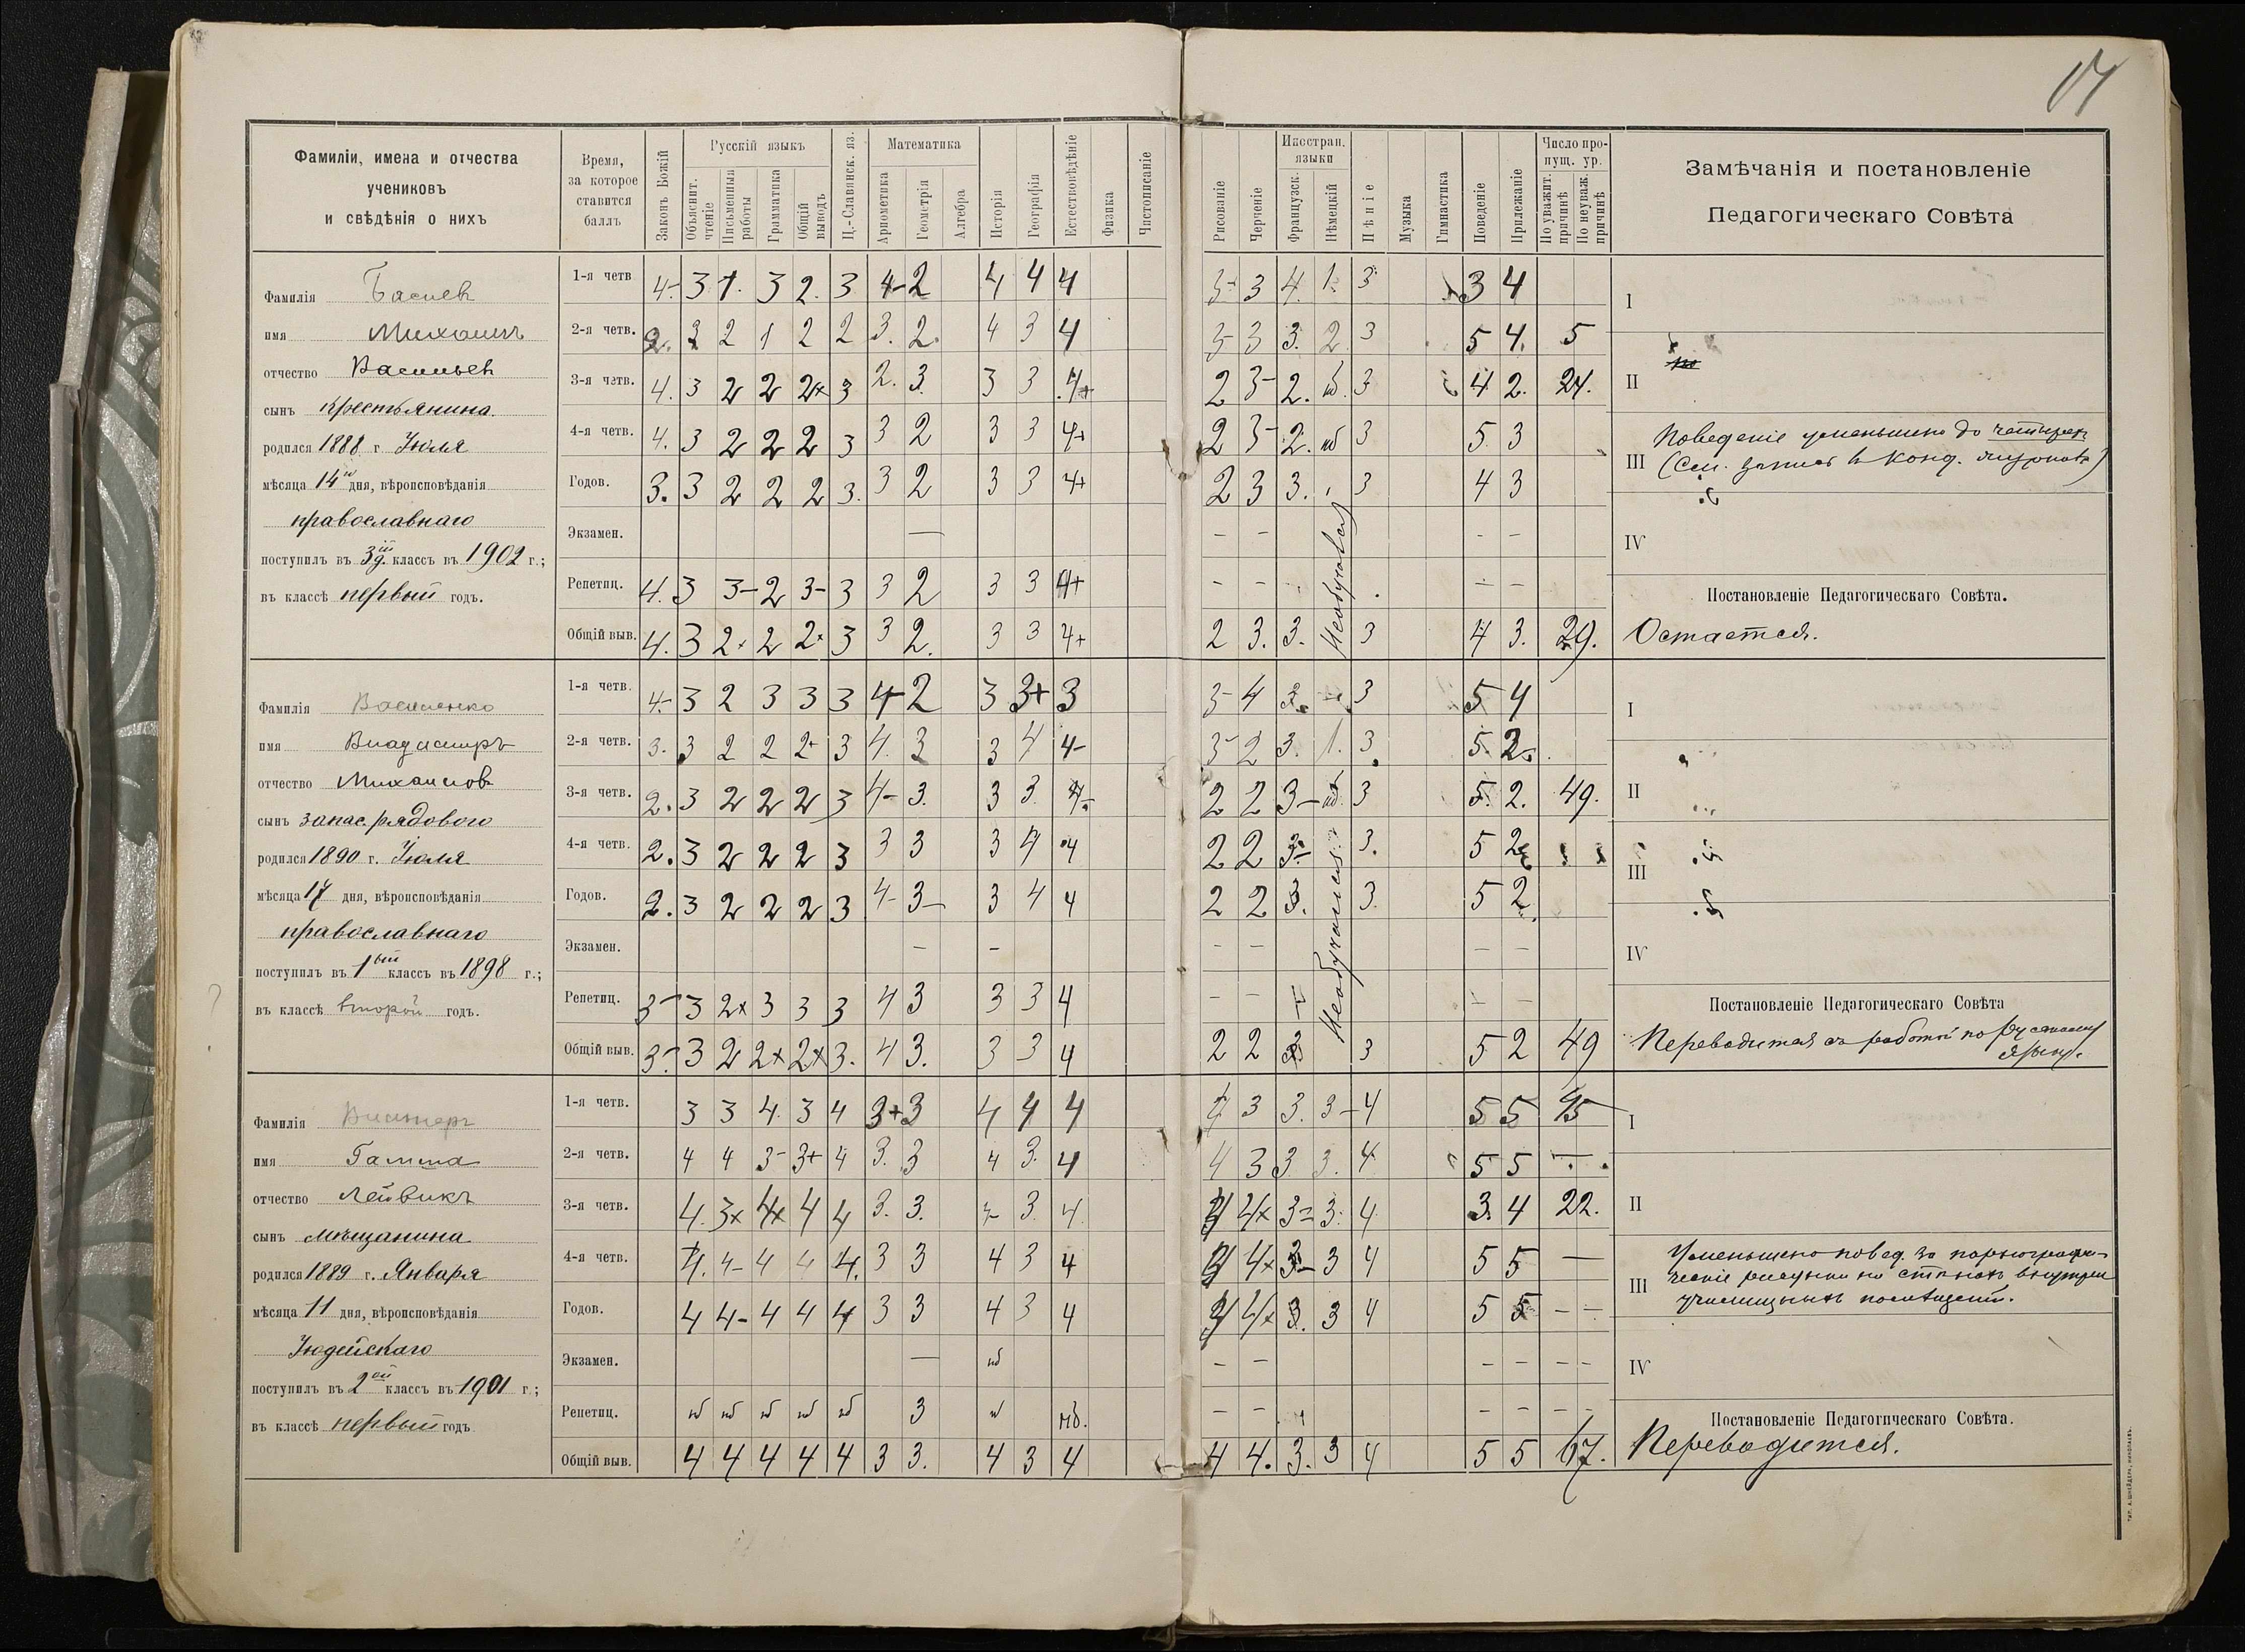 17
Фамиліи, имена и отчества
учениковъ
и свѣдѣнія о нихъ
Время,
за которое
ставится
баллъ
Законъ Божій
Русскій языкъ
Объяснит. чтеніе
Письменныя работы
Грамматика
Общій выводъ
Ц.-Славянск. яз.
Математика
Ариѳметика
Геометрія
Алгебра
Исторія
Географія
Естествовѣдѣніе
Физика
Чистописаніе
Рисованіе
Черченіе
Иностран. языки
Французск.
Нѣмецкій
Пѣніе
Музыка
Гимнастика
Поведеніе
Прилежаніе
Число пропущ. ур.
По уважит. причинѣ
По неуваж. причинѣ
Замѣчанія и постановленіе
Педагогическаго Совѣта
Фамилія
имя Михаилъ
отчество Васильев
сынъ крестьянина
родился 1888 г. Іюля
мѣсяца 14 дня, вѣроисповѣданія
православнаго
поступилъ въ 3й классъ въ 1902 г.;
въ классѣ первый годъ.
1-я четв 4- 3 1. 3 2. 3 4- 2 4 4 4 3- 3 4. 1. 3 3 4
2-я четв. 2. 3 2 1 2 2 3. 2. 4 3 4 3- 3 3. 2. 3 5 4. 5
3-я четв. 4. 3 2 2 2x 3 2. 3. 3 3 4+ 2 3- 2. нб. 3 4 2. 24.
4-я четв. 4. 3 2 2 2 3 3 2 3 3 4+ 2 3- 2. нб 3 5. 3
Годов. 3. 3 2 2 2 3. 3 2 3 3 4+ 2 3 3. 3 4 3
Экзамен. — – – – –
Репетиц. 4. 3 3- 2 3- 3 3 2 3 3 4+ – – – –
Общій выв. 4. 3 2+ 2 2+ 3 3 2. 3 3 4+ 2 3. 3. 3 4 3. 29.
I
II
III Поведеніе уменьшено до четырех
IV
Постановленіе Педагогическаго Совѣта.
Остается.
Фамилія Василенко
имя Владиміръ
отчество Михайлов
сынъ запас. рядового
родился 1890 г. Іюля
мѣсяца 17 дня, вѣроисповѣданія
православнаго
поступилъ въ 1ый классъ въ 1898 г.;
въ классѣ второй годъ.
1-я четв. 4- 3 2 3 3 3 4- 2 3 3+ 3 3- 4 3. 3 5 4
2-я четв. 3. 3 2 2 2+ 3 4. 3 3 4 4- 3- 2 3. 1. 3. 5. 2.
3-я четв. 2. 3 2 2 2 3 4- 3. 3 3. 4- 2 2 3- нб. 3 5. 2. 49.
4-я четв. 2. 3 2 2 2 3 3 3 3 4 4 2 2 3- 3. 5 2
Годов. 2. 3 2 2 2 3 4- 3- 3 4 4 2 2 3. 3. 5 2
Экзамен. – – – – – –
Репетиц. 3- 3 2x 3 3 3 4 3 3 3 4 – – – –
Общій выв. 3- 3 2 2x 2x 3. 4 3. 3 3 4 2 2 3 3 5 2 49
I
II
III
IV
Постановленіе Педагогическаго Совѣта
Переводится съ работой по русскому
языку.
Фамилія
имя
отчество Лейвикъ
сынъ мѣщанина
родился 1889 г. Января
мѣсяца 11 дня, вѣроисповѣданія
Іюдейскаго
поступилъ въ 2ой классъ въ 1901 г.;
въ классѣ первый годъ
1-я четв. 3 3 4. 3 4 3+ 3 4 4 4 4 3 3. 3- 4 5 5 45
2-я четв. 4 4 3- 3+ 4 3. 3 4 3. 4 4 3 3 3. 4 5 5 —
3-я четв. 4. 3x 4x 4 4 3. 3. 4- 3. 4. 4 4x 3= 3. 4. 3. 4 22.
4-я четв. 4. 4- 4 4 4. 3 3 4 3 4 4 4x 3- 3 4 5 5 —
Годов. 4 4- 4 4 4 3 3 4 3 4 4 4x 3. 3 4 5 5 – –
Экзамен. — нб – – – – – –
Репетиц. нб нб нб нб нб 3 нб нб. – – – – – –
Общій выв. 4 4 4 4 4 3 3. 4 3 4 4 4. 3. 3 4 5 5 67.
I
II
III Уменьшено повед. за порнографи-
ческіе рисунки на стѣнахъ внутрен
училищныхъ помѣщеній.
IV
Постановленіе Педагогическаго Совѣта.
Переводится.